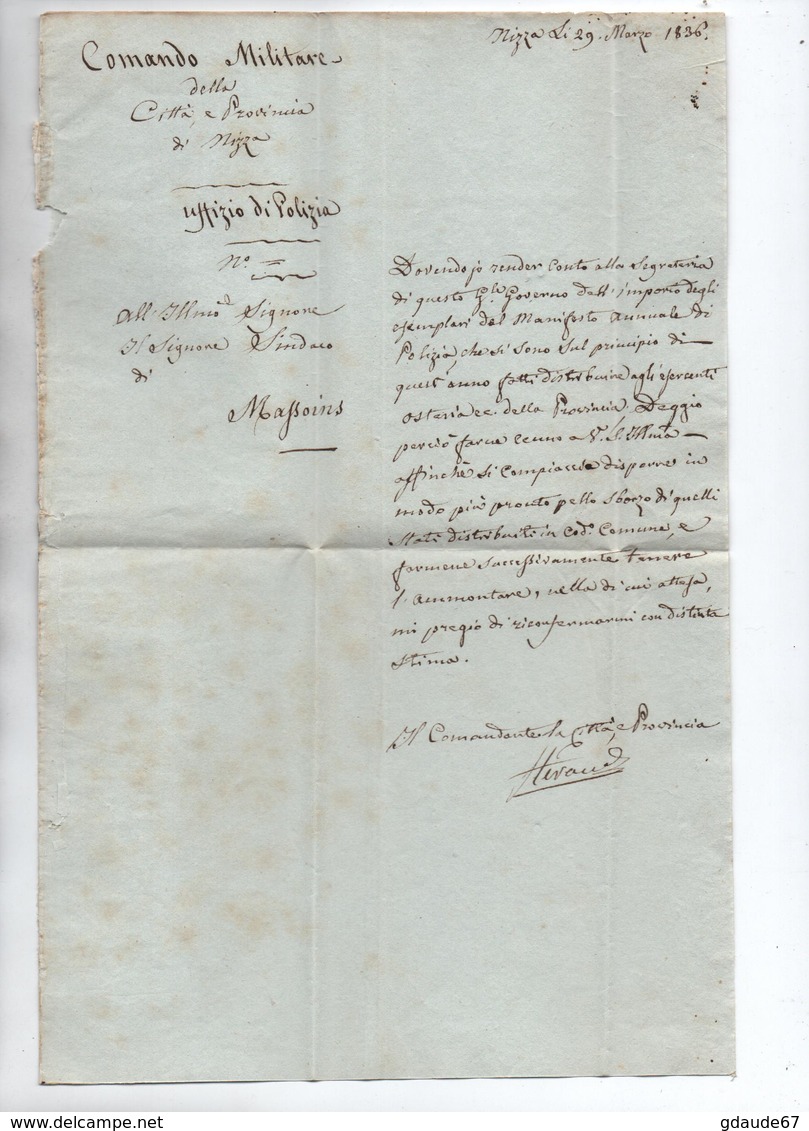 Nizza Li 29. Marzo 1836.
Comando Militare
della
Città, e Provincia
di Nizza
Uffizio di Polizia
N.°
All'Illmo Signore
Il Signore Sindaco
di
Massoins
Dovendo jo render Conto alla Segreteria
di questo Gle Governo dell'importo degli
esemplari del Manifesto Annuale di
Polizia, che si sono sul principio di
quest'anno fatti distribuire agli esercenti
osteria ec. della Provincia, Deggio
perciò farne cenno a V. S. Illma
affinchè si Compiaccia disporre in
modo più pronto pello sborzo di quelli
stati distribuiti in Cod.a Comune, e
farmene successivamente tenere
l'ammontare, nella di cui attesa,
mi pregio di riconfermarmi con distinta
stima.
Il Comandante la Città, e Provincia
gdaude67